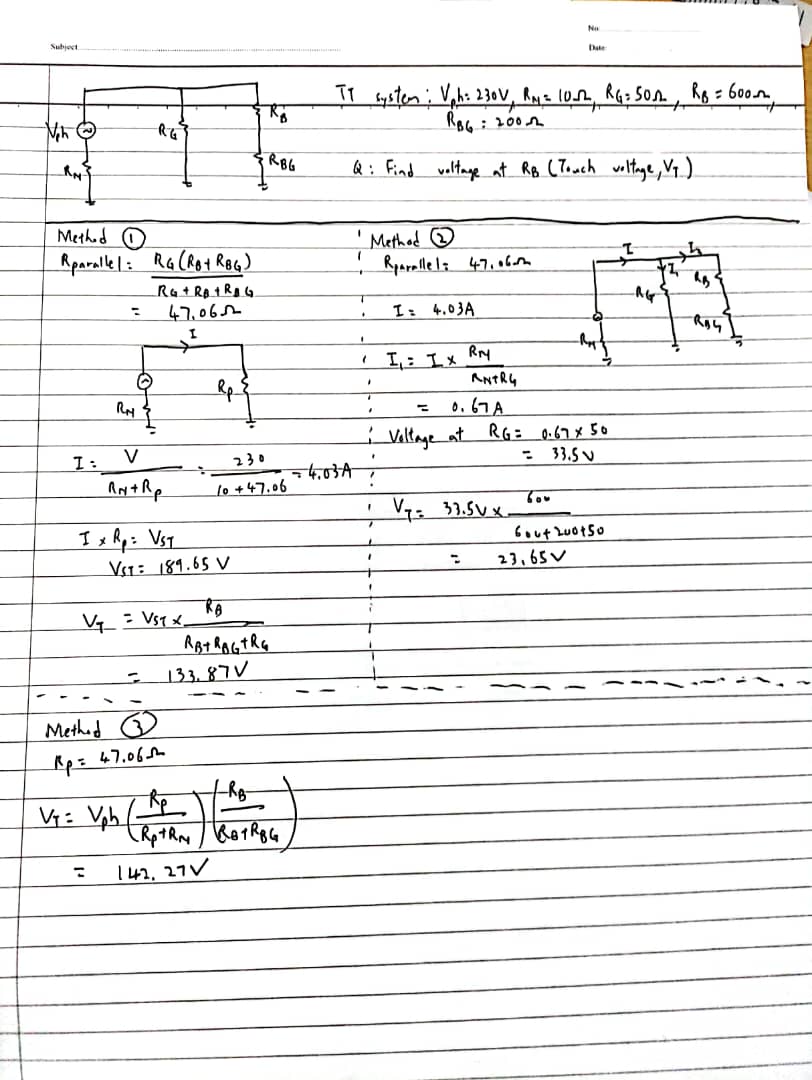 No
Subject
Date
TT system : Vph = 230V, RN = 10Ω, RG = 50Ω, RB = 600Ω,
RBG = 200Ω
Q : Find voltage at RB (Touch voltage, VT)
Vph RN RG RB RBG
Method ①
Rparallel = RG (RB + RBG)
RG + RB + RBG
= 47.06Ω
I
RN Rp
I = V = 230 = 4.03A
RN + Rp 10 + 47.06
I x Rp = VST
VST = 189.65 V
VT = VST x RB
RB + RBG + RG
= 133.87V
Method ②
Rparallel = 47.06Ω
I = 4.03A
I₁ = I x RN
RN + RG
= 0.67A
Voltage at RG = 0.67 x 50
= 33.5V
VT = 33.5V x 600
600 + 200 + 50
= 23.65V
I I₂
I₁ RB
RG
RBG
RN
Method ③
Rp = 47.06Ω
VT = Vph (Rp) (RB)
(Rp + RN) (RB + RBG)
= 142.27V